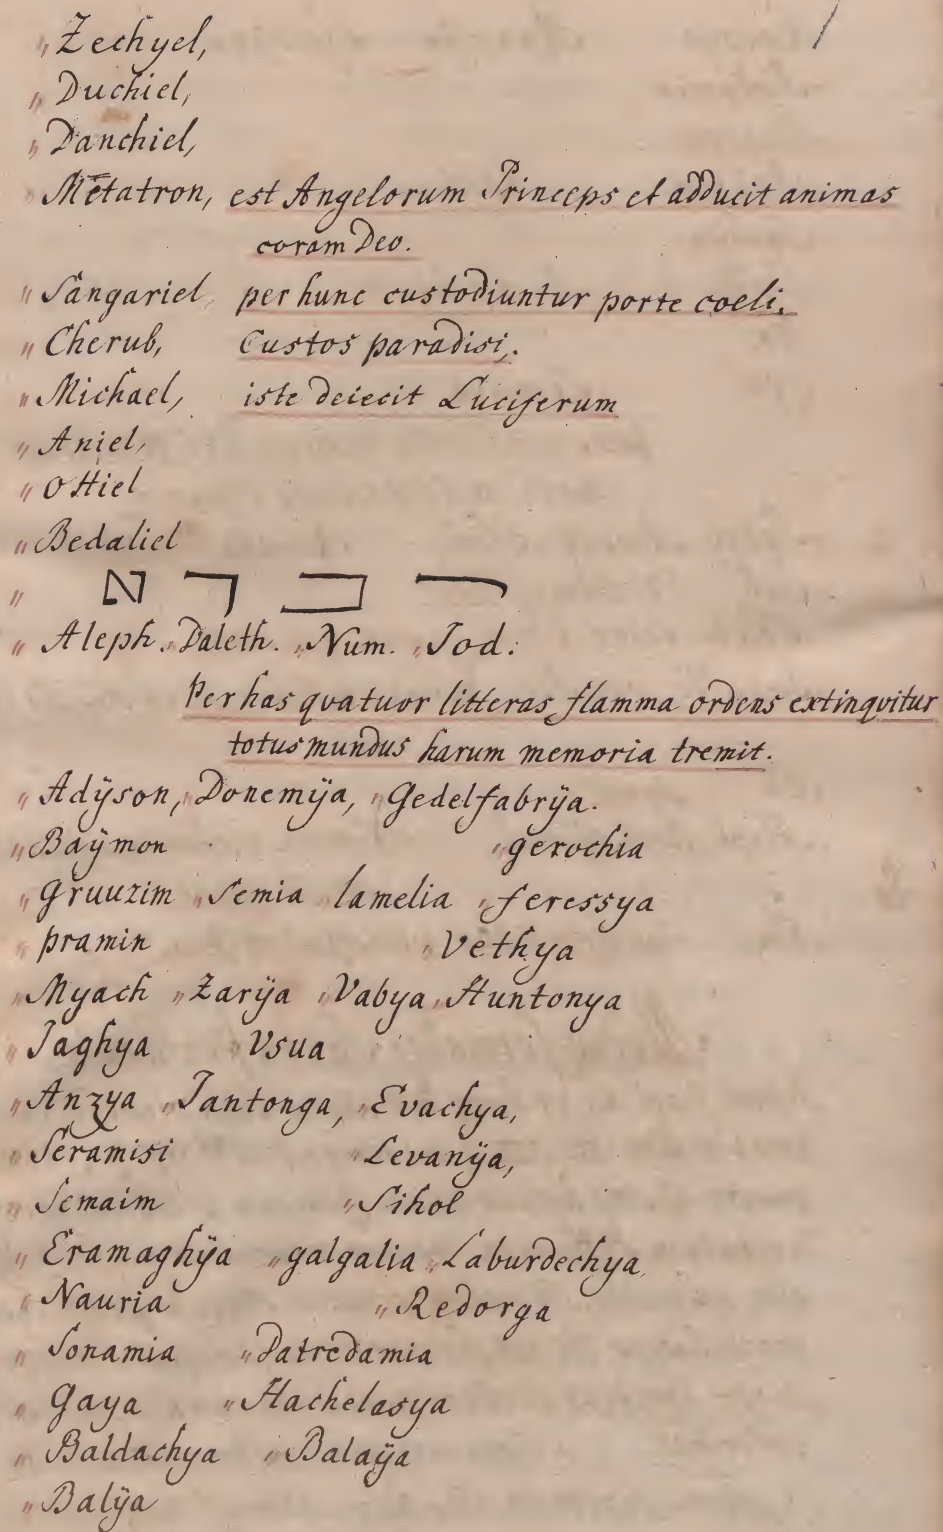 〃 Zechyel,
〃 Duchiel,
〃 Danchiel,
Metatron, est Angelorum Princeps et adducit animas
coram Deo.
〃 Sangariel, per hunc custodiuntur porte coeli.
〃 Cherub, Custos paradisi,.
〃 Michael, iste deiecit Luciferum
〃 Aniel,
〃 Ottiel
〃 Bedaliel
〃
〃 Aleph. 〃 Daleth. 〃 Num. 〃 Jod:
Per has quatuor litteras flamma ordens extinquitur
totus mundus harum memoria tremit.
〃 Adÿson, 〃 Donemÿa, 〃 Gedelfabrÿa.
〃 Baÿmon 〃 gerochia
〃 Gruuzim 〃 Semia 〃 lamelia 〃 feressya
〃 pramin 〃 Vethya
〃 Myach 〃 Zarÿa 〃 Vabya 〃 Huntonya
〃 Jaghya 〃 Vsua
〃 Anzya 〃 Jantonga, 〃 Evachya,
〃 Seramisi 〃 Levanÿa,
〃 Semaim 〃 Sihol
〃 Eramaghÿa 〃 galgalia 〃 Laburdechya
〃 Nauria 〃 Redorga
〃 Sonamia 〃 Datredamia
〃 Gaya 〃 Hachelasya
〃 Baldachya 〃 Balaÿa
〃 Balÿa